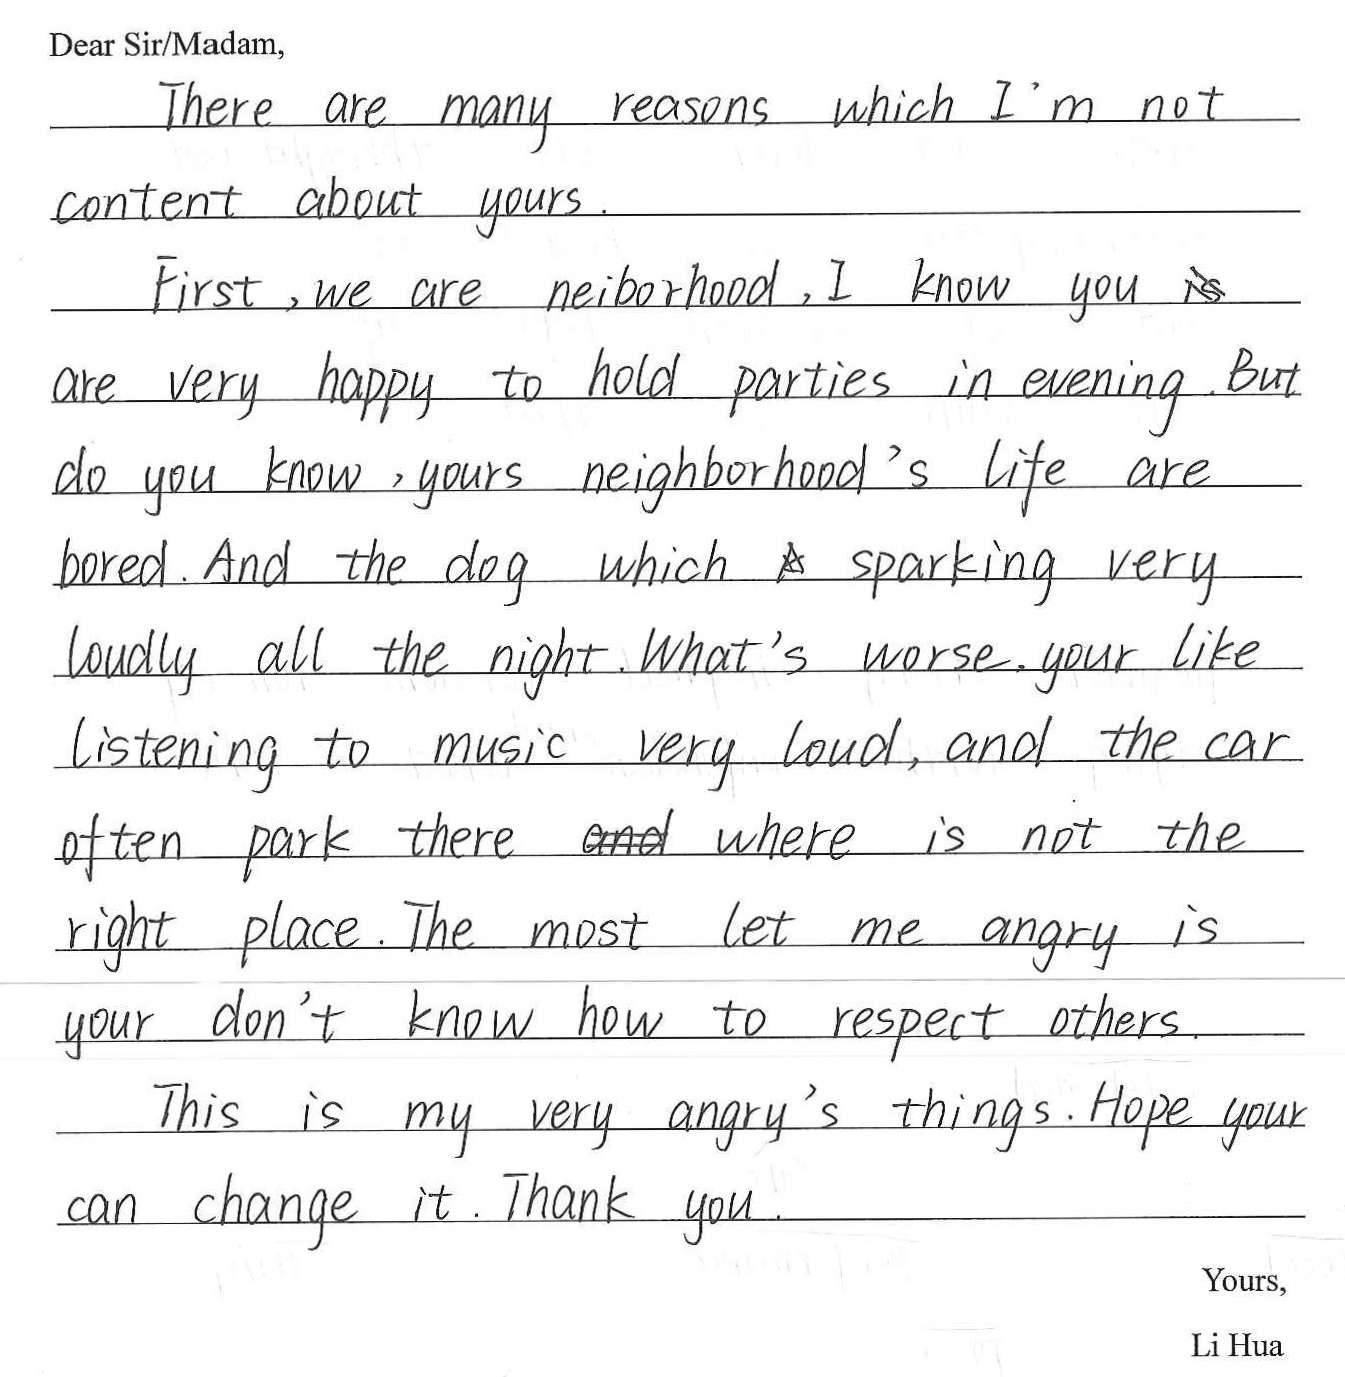 Dear Sir/Madam,
There are many reasons which I'm not
content about yours.
First, we are neiborhood, I know you
are very happy to hold parties in evening. But
do you know, yours neighborhood's life are
bored. And the dog which sparking very
loudly all the night. What's worse. your like
listening to music very loud, and the car
often park there and where is not the
right place. The most let me angry is
your don't know how to respect others.
This is my very angry's things. Hope your
can change it. Thank you.
Yours,
Li Hua